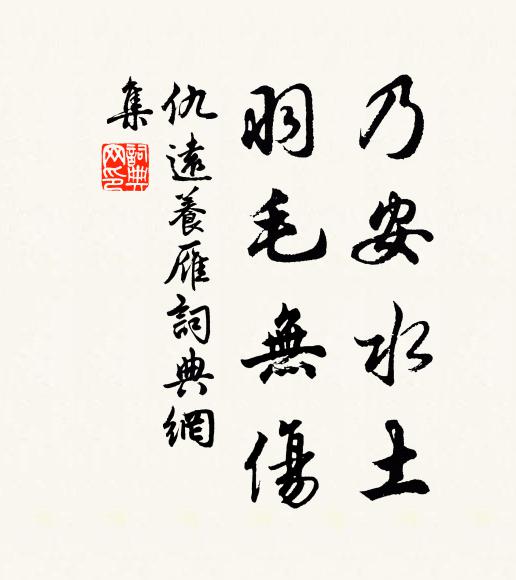 乃安水土
羽毛無傷
仇遠養雁詞典網
集
詞典
网印